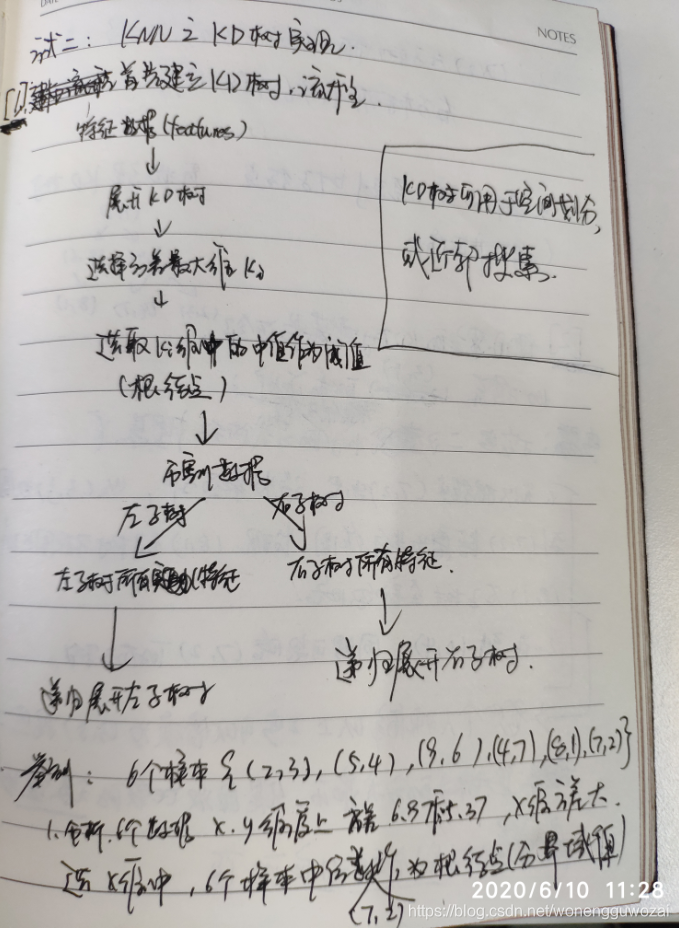 DATE
NOTES
试二：KNN之KD树实现.
[1] 首先建立KD树，流程.
特征数据(features)
↓
展开KD树
↓
选择方差最大维Ki
↓
选取Ki维中的中值作为阈值
(根结点)
KD树可用于空间划分,
或近邻搜索.
分割数据
左子树 右子树
左子树所有特征 右子树所有特征.
递归展开右子树.
递归展开左子树
举例: 6个样本{(2,3),(5,4),(9,6),(4,7),(8,1),(7,2)}
1.分析.6个数据 x.y维度上 方差 6.9 5.37, x维方差大.
选x维中, 6个样本中 为根结点(分界域值)
(7,2)
2020/6/10 11:28
https://blog.csdn.net/wonengguwozai